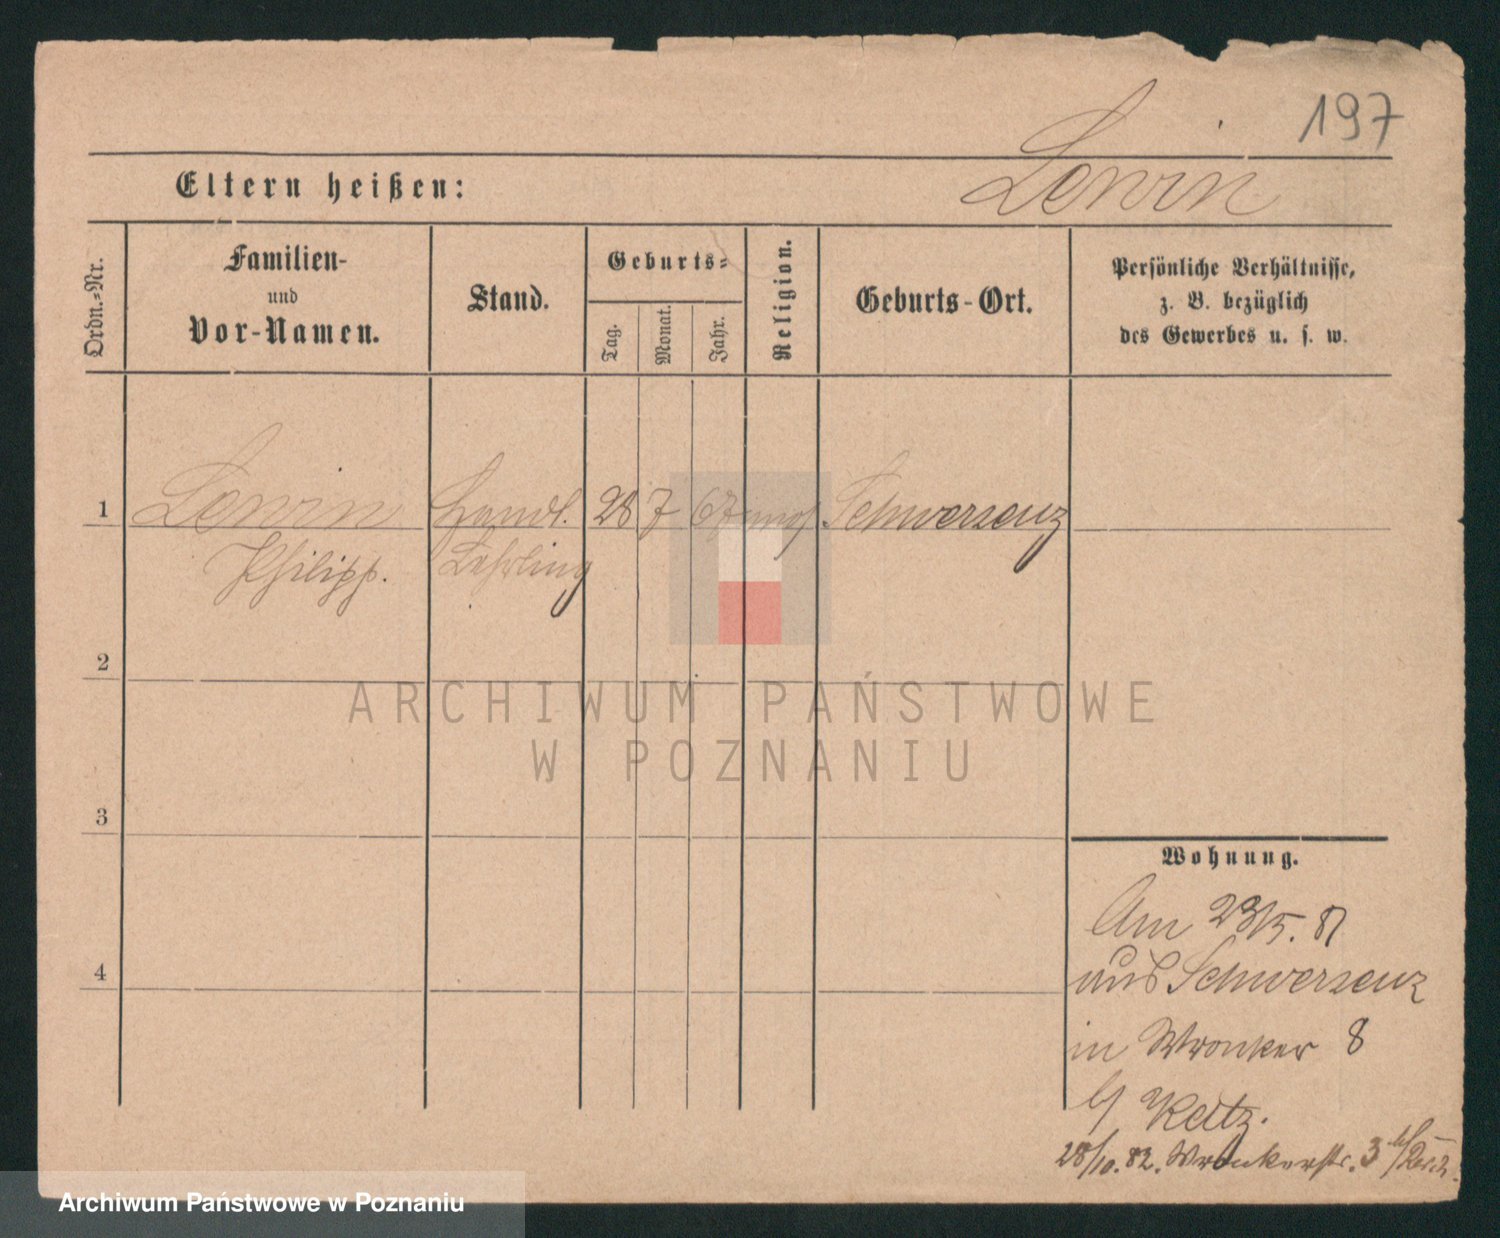 197
Lewin
Eltern heißen:
Ordn.-Nr.
Familien-
und
Vor-Namen.
Stand.
Geburts-
Tag.
Monat.
Jahr.
Religion.
Geburts-Ort.
Persönliche Verhältnisse,
z. B. bezüglich
des Gewerbes u. s. w.
1 Lewin Handl. 28 7 67 mos. Schwersenz
Philipp. Lehrling
2
ARCHIWUM PAŃSTWOWE
W POZNANIU
3
Wohnung.
Am 23/5. 81
aus Schwersenz
4
in Wronker 8
b/
28/10. 82. Wronkerstr. 3 b/
Archiwum Państwowe w Poznaniu